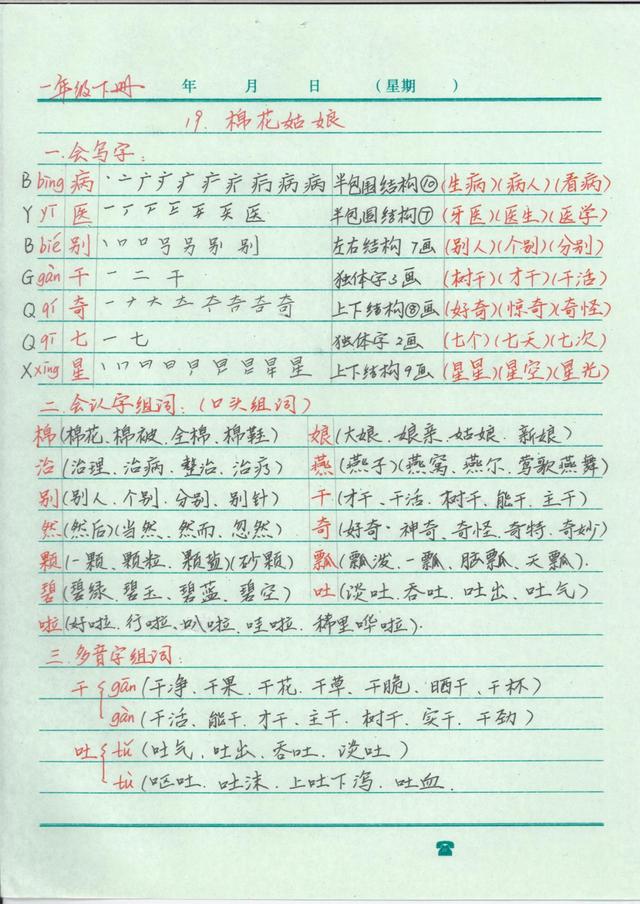 一年级下册 年 月 日 (星期 )
19. 棉花姑娘
一.会写字:
B bìng 病 丶 亠 广 疒 疒 疒 疔 病 病 病 半包围结构⑩ (生病)(病人)(看病)
Y yī 医 一 丆 匚 三 矢 医 半包围结构⑦ (牙医)(医生)(医学)
B bié 别 丨 口 口 号 另 别 别 左右结构 7画 (别人)(个别)(分别)
G gàn 干 一 二 干 独体字3画 (树干)(才干)(干活)
Q qí 奇 一 ナ 大 奇 奇 奇 奇 奇 上下结构⑧画 (好奇)(惊奇)(奇怪)
Q qī 七 一 七 独体字 2画 (七个)(七天)(七次)
X xīng 星 丨 口 日 日 星 星 星 星 星 上下结构9画 (星星)(星空)(星光)
二.会认字组词:(口头组词)
棉(棉花、棉被、全棉、棉鞋) 娘(大娘、娘亲、姑娘、新娘)
治(治理、治病、整治、治疗) 燕(燕子)(燕窝、燕尔、莺歌燕舞)
别(别人、个别、分别、别针) 干(才干、干活、树干、能干、主干)
然(然后)(当然、然而、忽然) 奇(好奇·神奇、奇怪、奇特、奇妙)
颗(一颗、颗粒、颗盐)(砂颗) 瓢(瓢泼、一瓢、脑瓢、天瓢).
碧(碧绿、碧玉、碧蓝、碧空) 吐(谈吐、吞吐、吐出、吐气)
啦(好啦、行啦、趴啦、哇啦、稀里哗啦).
三.多音字组词:
干 { gān (干净、干果、干花、干草、干脆、晒干、干杯)
gàn (干活、能干、才干、主干、树干、实干、干劲)
吐 { tǔ (吐气、吐出、吞吐、谈吐)
tù (呕吐、吐沫、上吐下泻、吐血.